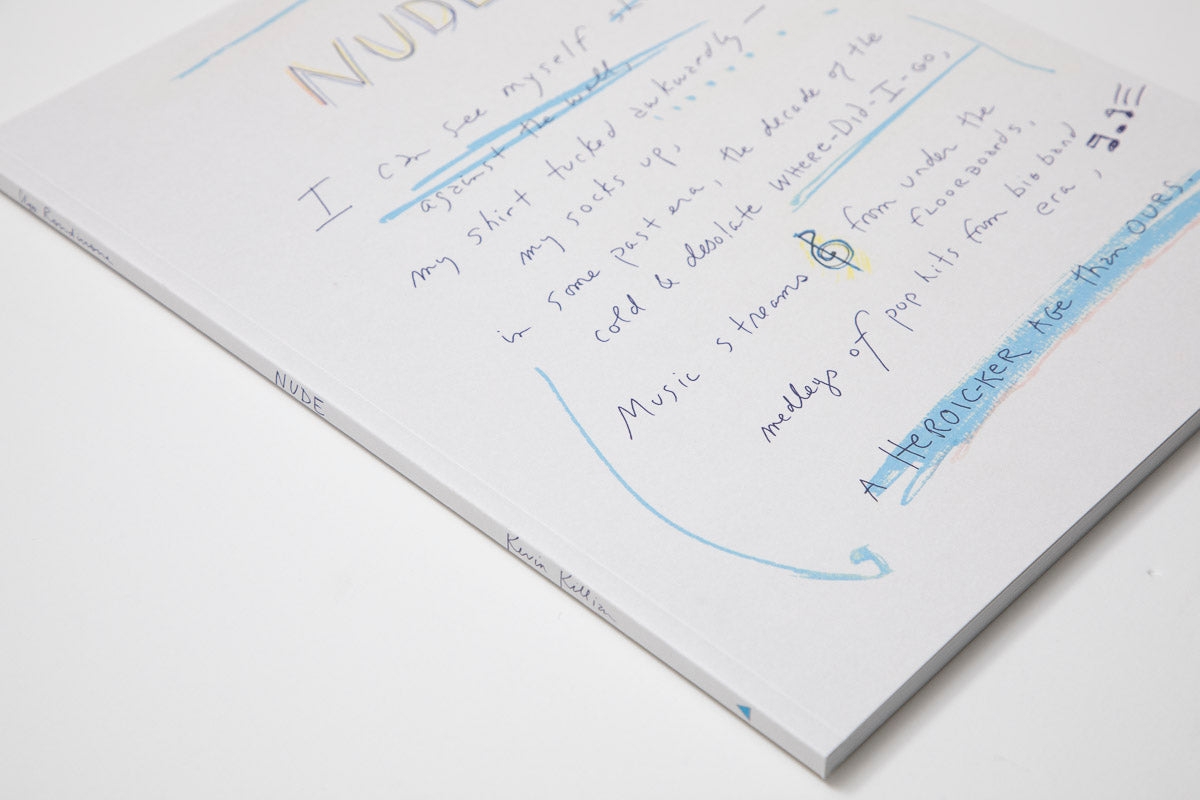 NUDE
I can see myself
against the wall,
my shirt tucked awkwardly —
my socks up,
in some past era, the decade of the
cold & desolate WHERE-DID-I-GO,
Music streams from under the
FLOORBOARDS,
medleys of pop hits from big band
era,
A HEROIC-KER AGE than OURS.
NUDE
Kevin Killian